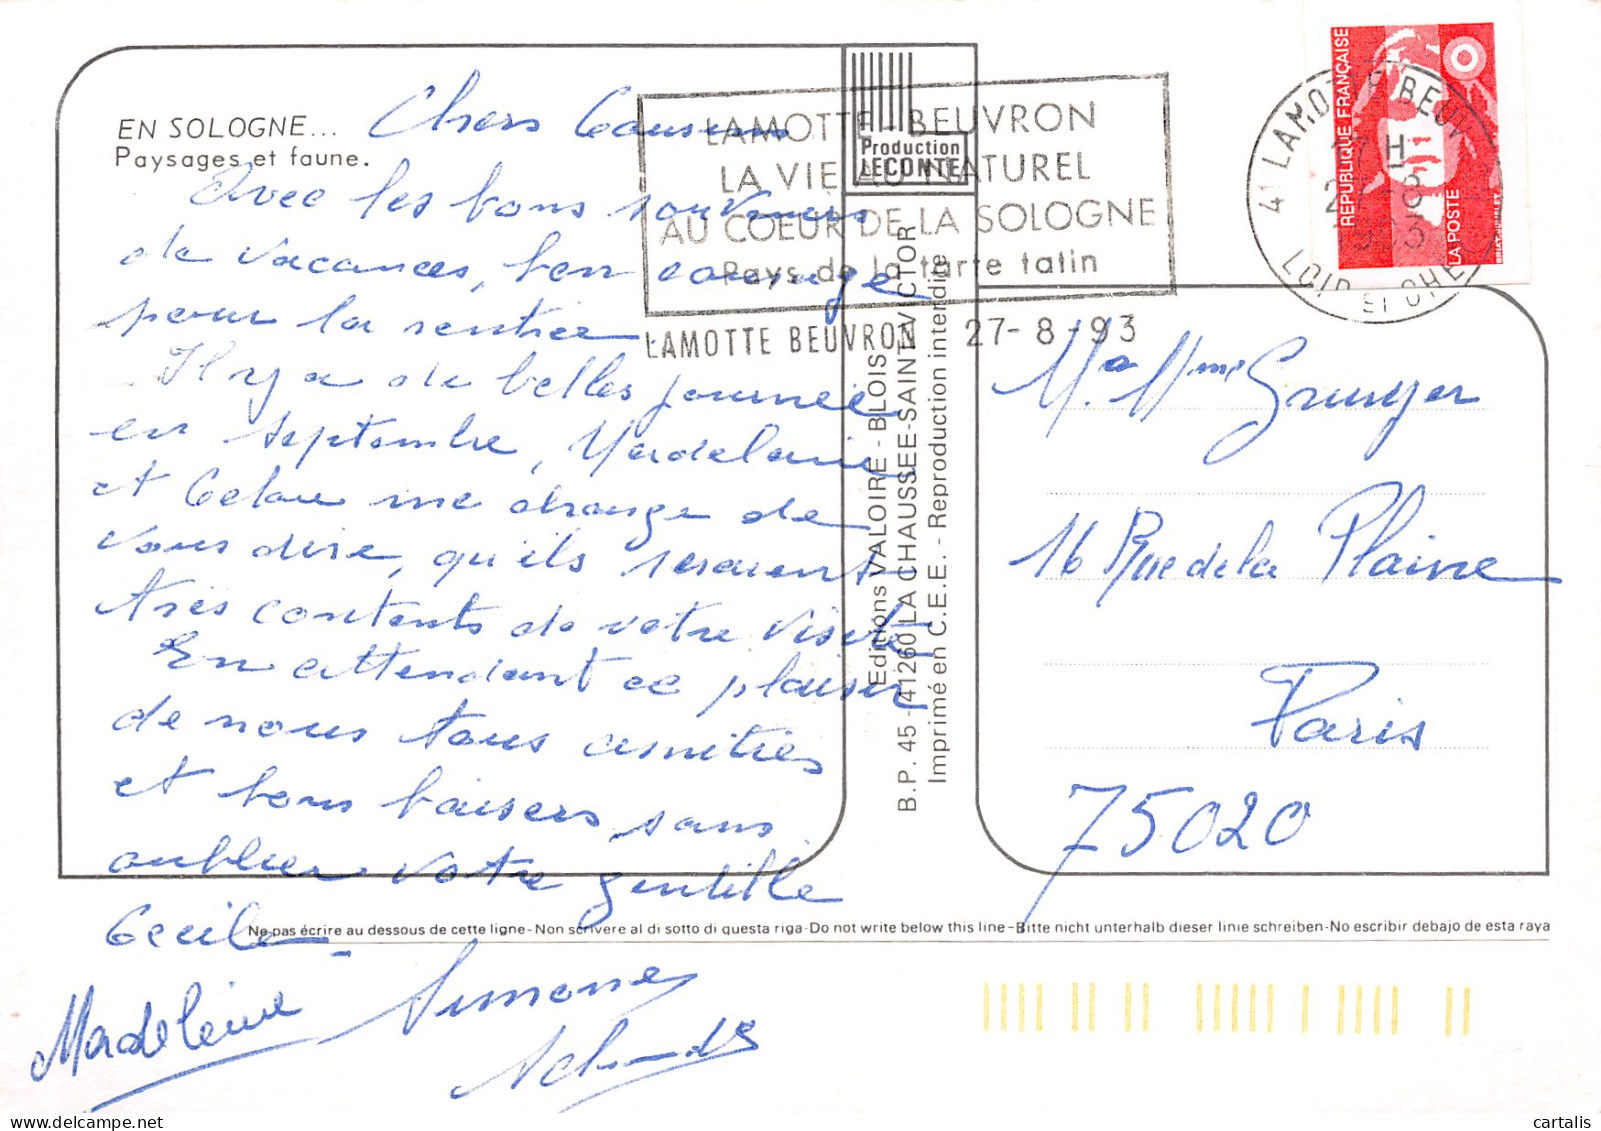 EN SOLOGNE...
Paysages et faune.
Chers Cousins
Avec les bons souvenirs
de vacances, bon courage
pour la rentrée.
Il y a de belles journée
en septembre, Madeleine
et me charge de
vous dire, qu'ils seraient
très contents de votre visite
En attendant ce plaisir
de nous tous amitiés
et bons baisers sans
oublier votre gentille
Cecile.
Madeleine Simone
LAMOTTE-BEUVRON
LA VIE AU NATUREL
AU COEUR DE LA SOLOGNE
Pays de la tarte tatin
LAMOTTE BEUVRON 27-8-93
Production
LECONTE
Editions VALOIRE - BLOIS
B.P. 45 - 41260 LA CHAUSSEE-SAINT-VICTOR
Imprimé en C.E.E. - Reproduction interdite
REPUBLIQUE FRANÇAISE
LA POSTE
41 LAMOTTE BEUVRON
17 H
27-8
1993
LOIR ET CHER
M. Mme Grunger
16 Rue de la Plaine
Paris
75020
Ne pas écrire au dessous de cette ligne-Non scrivere al di sotto di questa riga-Do not write below this line-Bitte nicht unterhalb dieser linie schreiben-No escribir debajo de esta raya
cartalis
delcampe.net